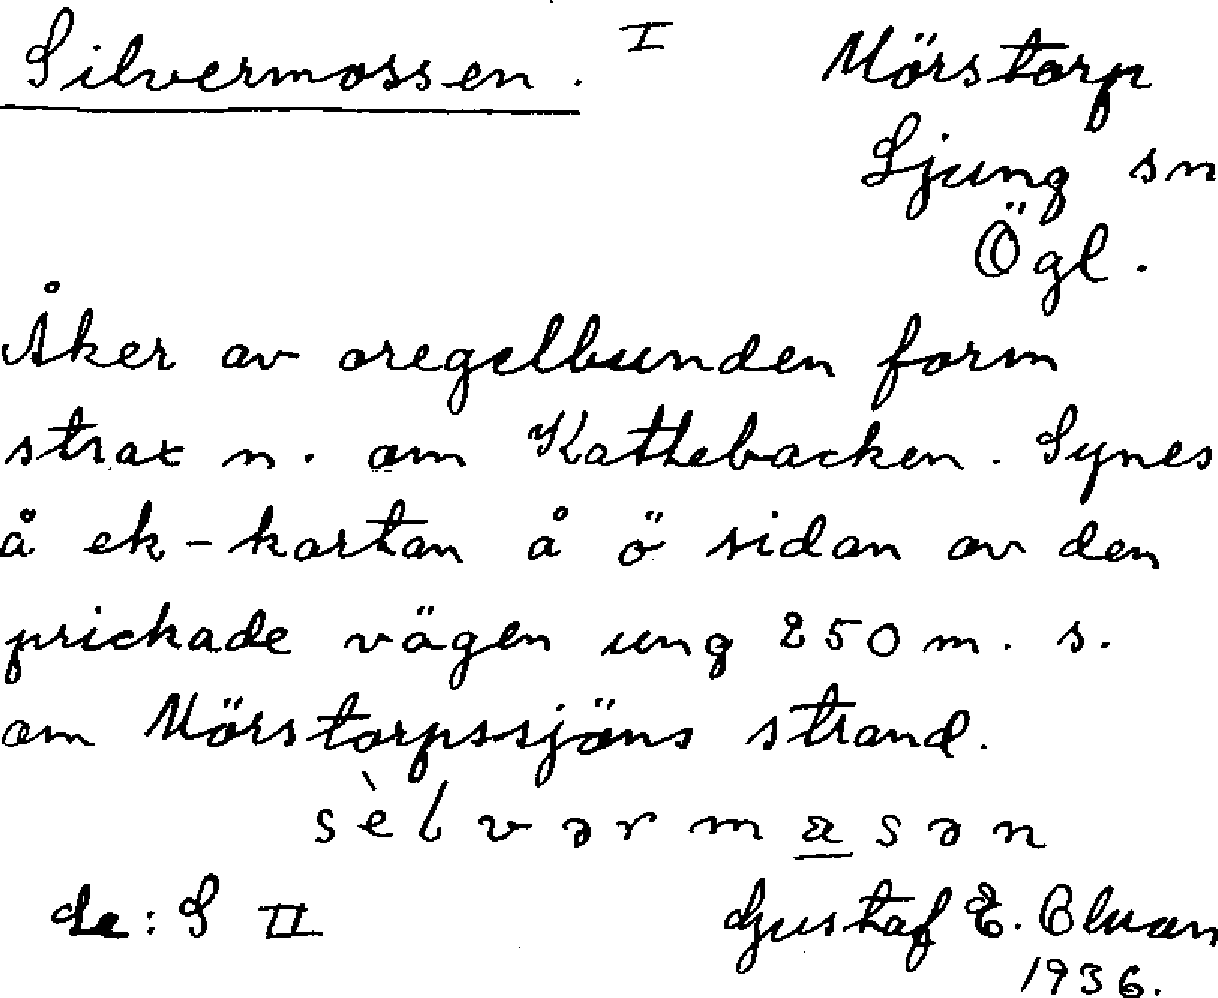 Silvermossen. I Mörstorp
Ljung sn
Ögl.
Åker av oregelbunden form
strax n. om Kattebacken. Synes
å ek-kartan å ö sidan av den
prickade vägen ung 250 m. s.
om Mörstorpssjöns strand.
sèlvərmasən
de: S II Gustaf E.
1936.